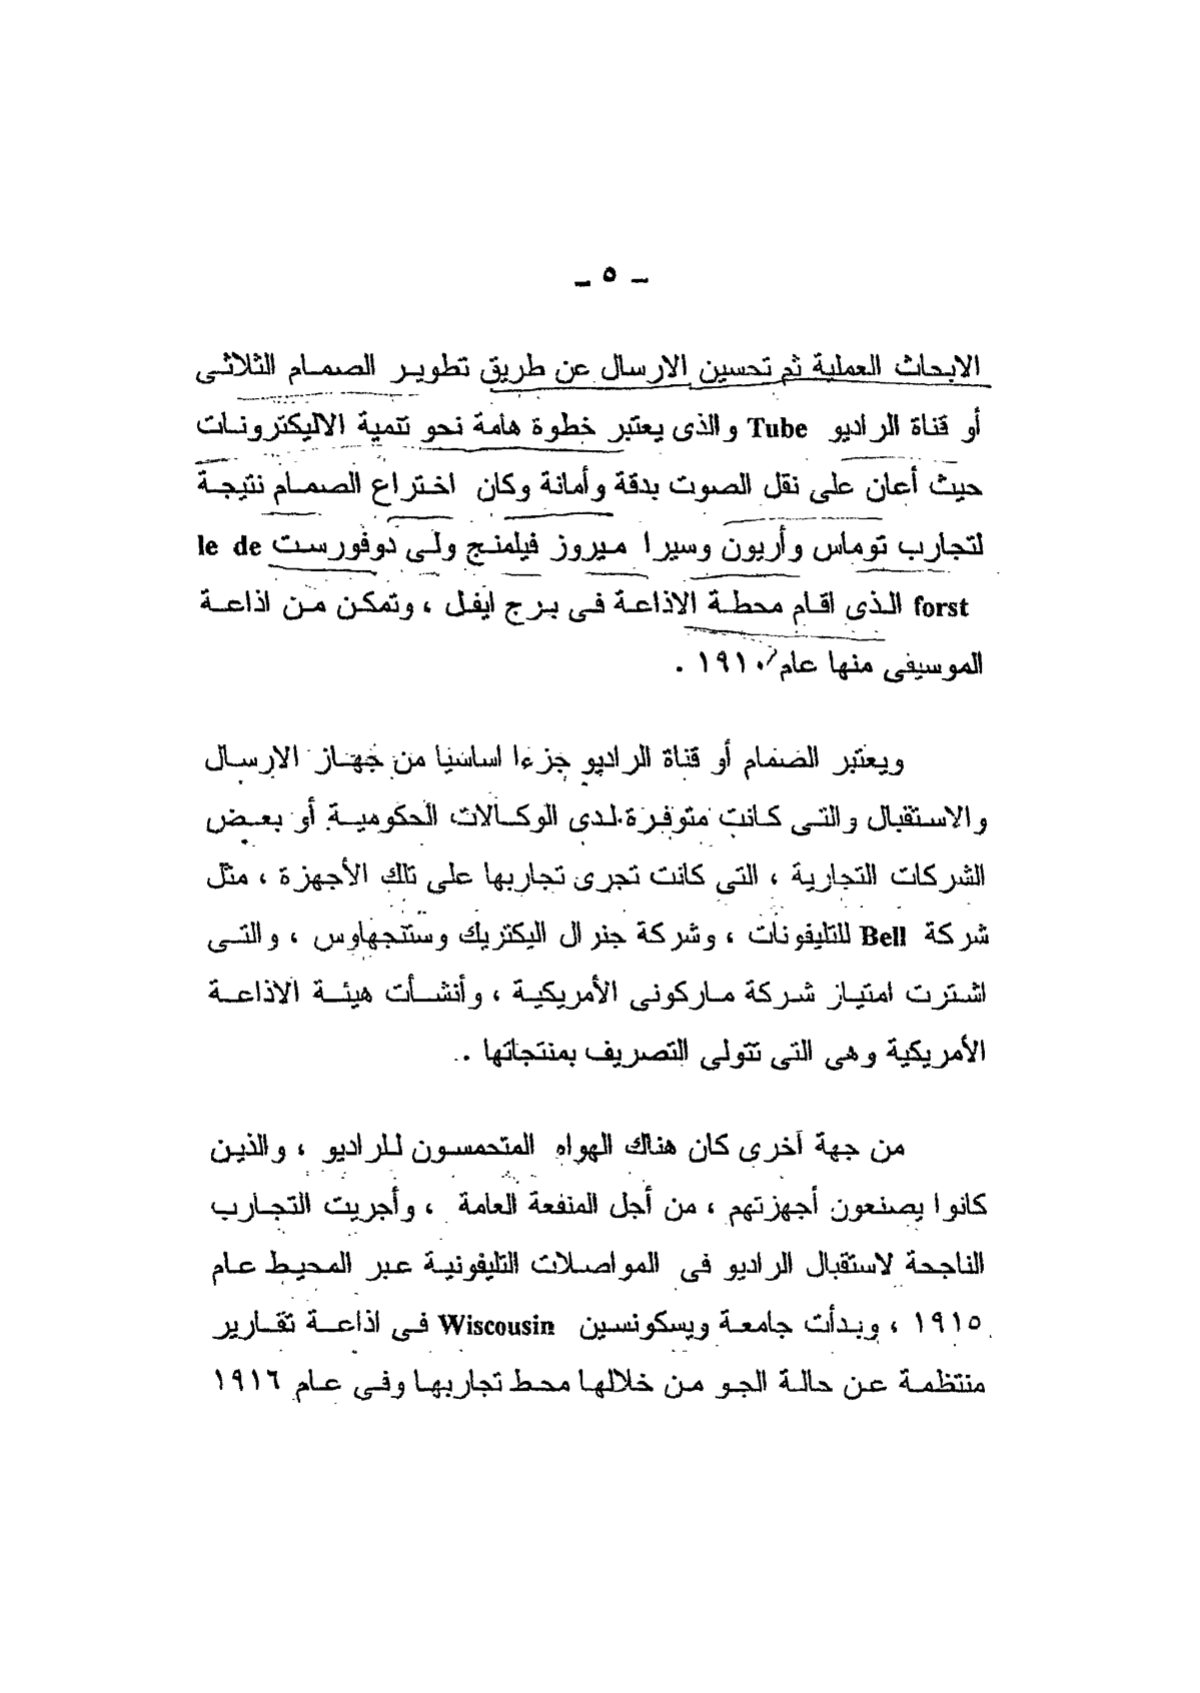 ـ ٥ ـ
الابحاث العملية ثم تحسين الارسال عن طريق تطوير الصمام الثلاثى
أو قناة الراديو Tube والذى يعتبر خطوة هامة نحو تنمية الاليكترونات
حيث أعان على نقل الصوت بدقة وأمانة وكان اختراع الصمام نتيجة
لتجارب توماس وأريون وسيرا ميروز فيلمنج ولى دوفورست le de
forst الذى اقام محطة الاذاعة فى برج ايفل ، وتمكن من اذاعة
الموسيفى منها عام ١٩١٠ .
ويعتبر الصمام أو قناة الراديو جزءا اساسيا من جهاز الارسال
والاستقبال والتى كانت متوفرة لدى الوكالات الحكومية أو بعض
الشركات التجارية ، التى كانت تجرى تجاربها على تلك الأجهزة ، مثل
شركة Bell للتليفونات ، وشركة جنرال اليكتريك وستنجهاوس ، والتى
اشترت امتياز شركة ماركونى الأمريكية ، وأنشأت هيئة الاذاعة
الأمريكية وهى التى تتولى التصريف بمنتجاتها .
من جهة آخرى كان هناك الهواه المتحمسون للراديو ، والذين
كانوا يصنعون أجهزتهم ، من أجل المنفعة العامة ، وأجريت التجارب
الناجحة لاستقبال الراديو فى المواصلات التليفونية عبر المحيط عام
١٩١٥ ، وبدأت جامعة ويسكونسين Wiscousin فى اذاعة تقارير
منتظمة عن حالة الجو من خلالها محط تجاربها وفى عام ١٩١٦